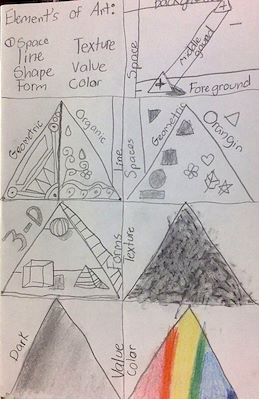 Element's of Art:
① Space Texture
line Value
Shape Color
Form
Space
middle
ground
Foreground
Geometric
Organic
Line
Spaces
Geometric
Orangin
3-D
Forms
Texture
Dark
Value
Color